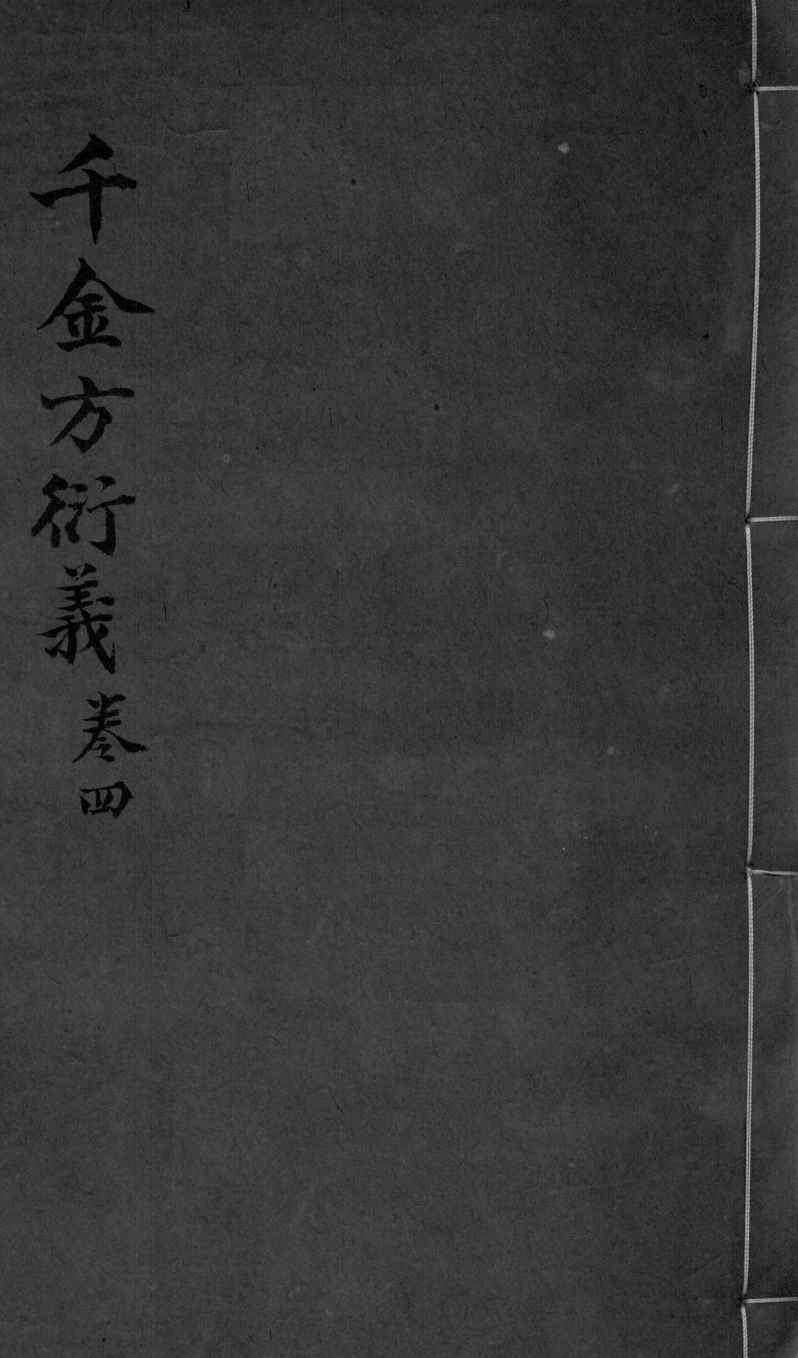 千金方衍義卷四